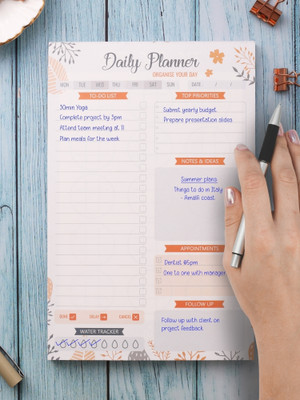 Daily Planner
ORGANISE YOUR DAY
MON TUE WED THU FRI SAT SUN DATE: / /
TO-DO LIST
30min Yoga
Complete project by 3pm
Attend team meeting at 11
Plan meals for the week
TOP PRIORITIES
Submit yearly budget
Prepare presentation slides
NOTES & IDEAS
Summer plans
Things to do in Italy
- Amalfi coast
APPOINTMENTS
Dentist 4:15pm
One to one with manager
FOLLOW UP
Follow up with client on
project feedback
DONE DELAY CANCEL
WATER TRACKER